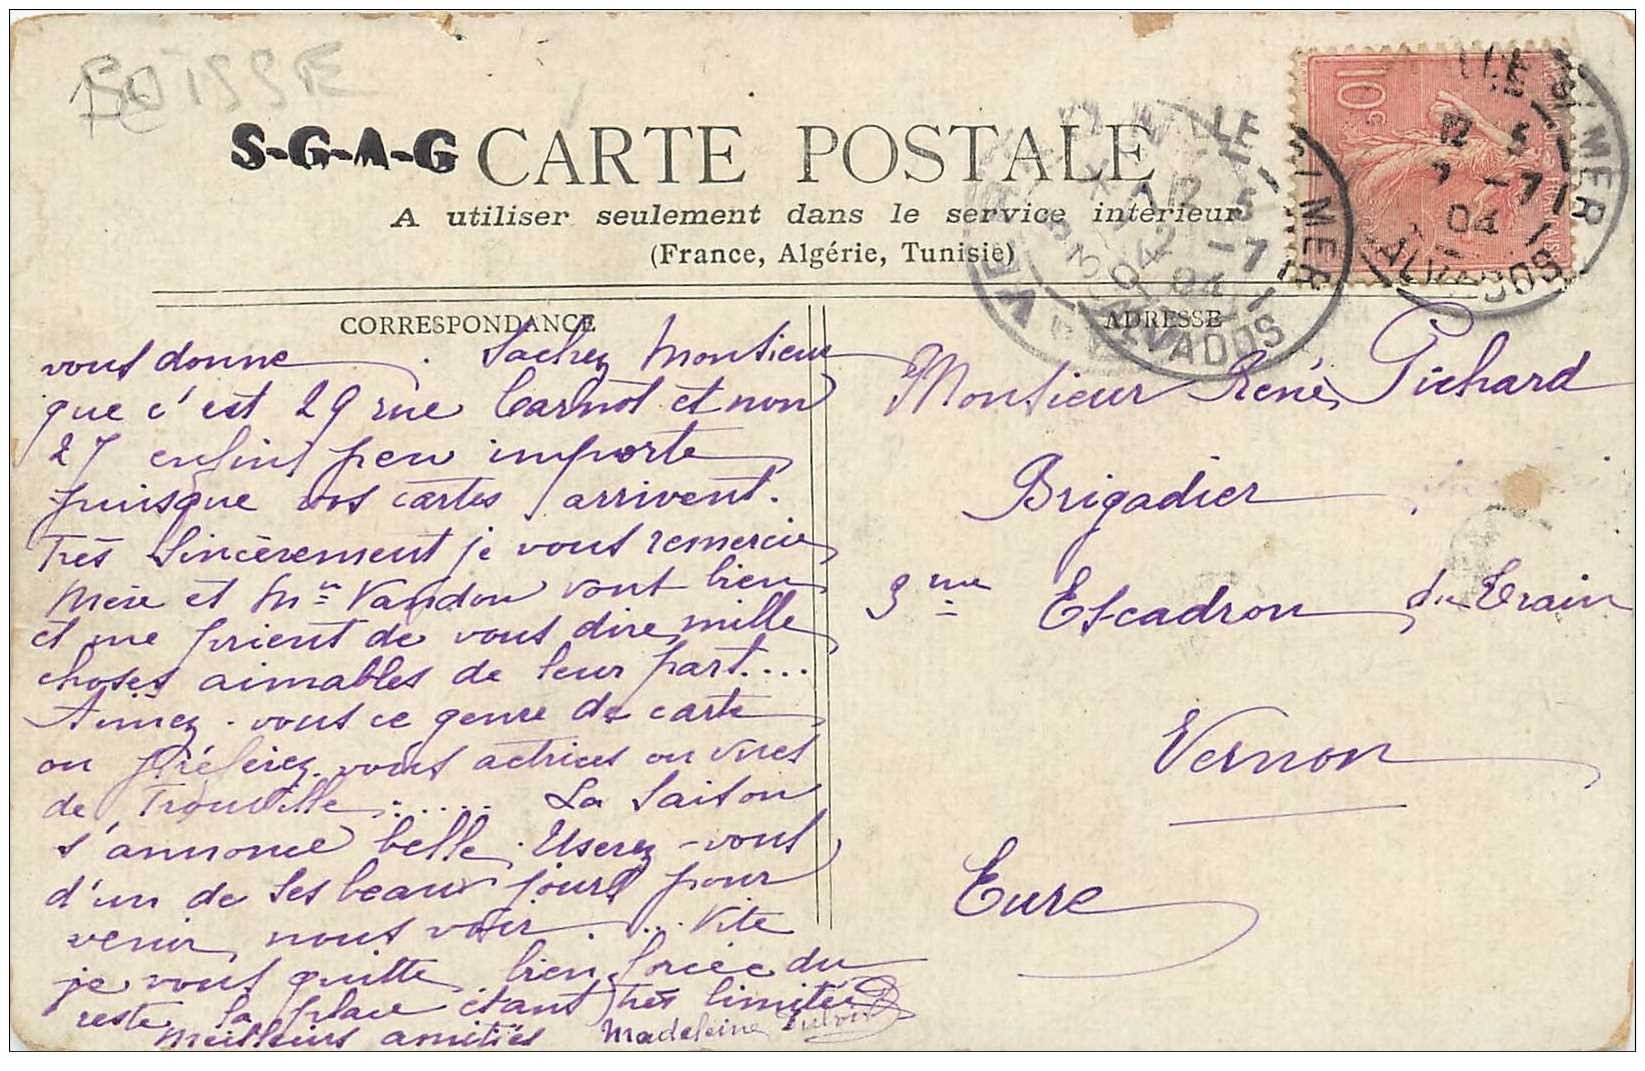 BOISSE
S-G-A-G CARTE POSTALE
A utiliser seulement dans le service intérieur
(France, Algérie, Tunisie)
CORRESPONDANCE
vous donne. Sachez Monsieur
que c'est 29 rue Carnot et non
27 enfin peu importe
puisque vos cartes arrivent.
Très sincèrement je vous remercie
Mère et Mr Vandon vont bien
et me prient de vous dire mille
choses aimables de leur part....
Aimez-vous ce genre de carte
ou préférez-vous actrices ou vues
de Trouville...... La Saison
s'annonce belle. Userez-vous
d'un de ses beaux jours pour
venir nous voir.... Vite
je vous quitte, bien forcée du
reste la place étant très limitée
Meilleurs amitiés Madeleine
ADRESSE
Monsieur René Pichard
Brigadier
3me Escadron du Train
Vernon
Eure
10c
LLE S/MER
12 5
2 -7
04
CALVADOS
LLE S/MER
12 5
2 -7
04
CALVADOS